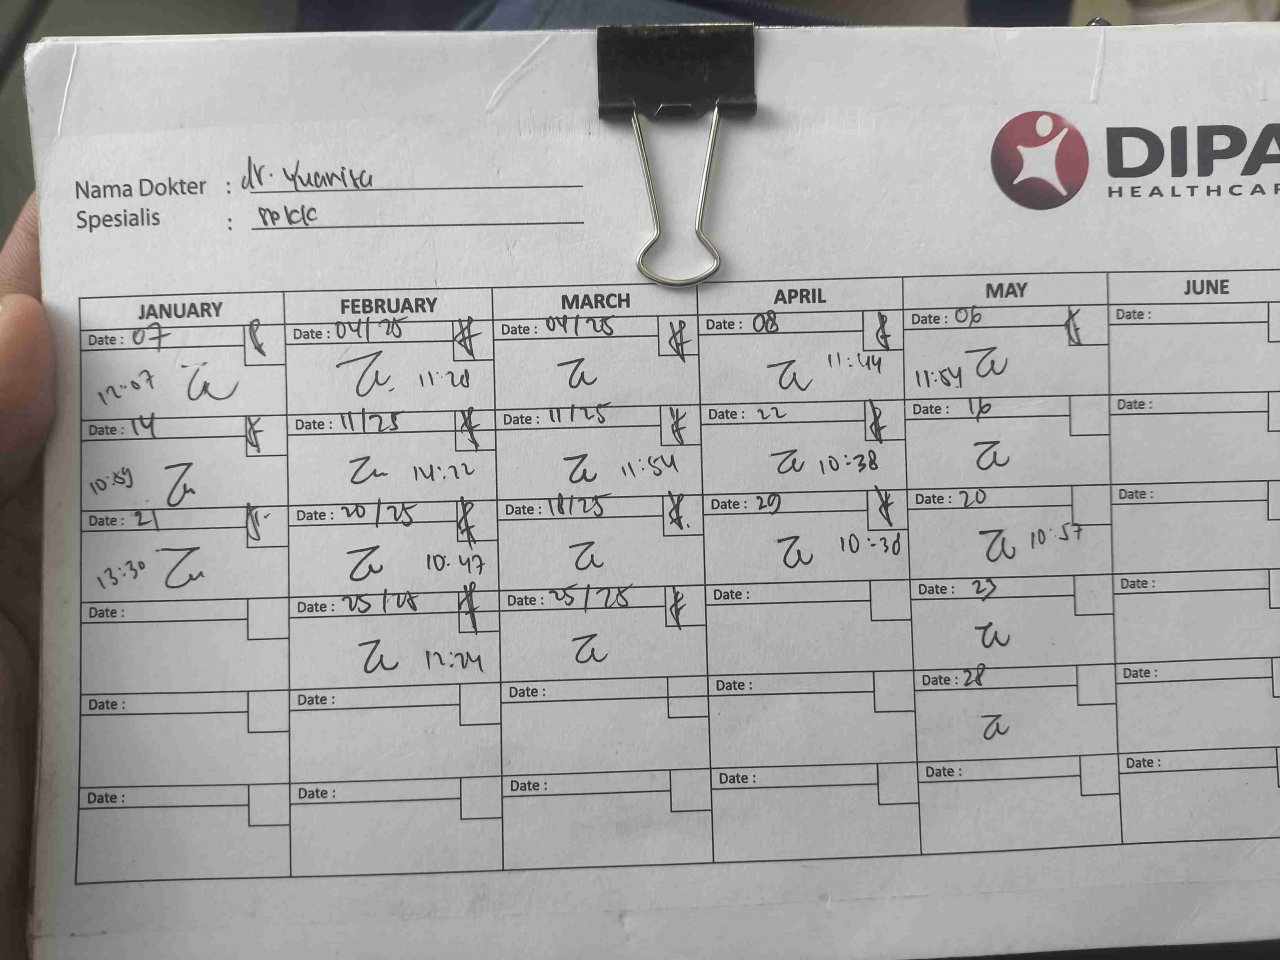 Nama Dokter : dr. Yuanita
Spesialis :
DIPA
HEALTHCAR
JANUARY FEBRUARY MARCH APRIL MAY JUNE
Date : 07 Date : 04/25 Date : 04/25 Date : 08 Date : 06 Date :
12:07 11:28 11:44 11:54
Date : 14 Date : 11/25 Date : 11/25 Date : 22 Date : 16 Date :
10:59 14:22 11:54 10:38
Date : 21 Date : 20/25 Date : 18/25 Date : 29 Date : 20 Date :
13:30 10:47 10:38 10:57
Date : Date : 25/25 Date : 25/25 Date : Date : 23 Date :
12:24
Date : Date : Date : Date : Date : 28 Date :
Date : Date : Date : Date : Date : Date :